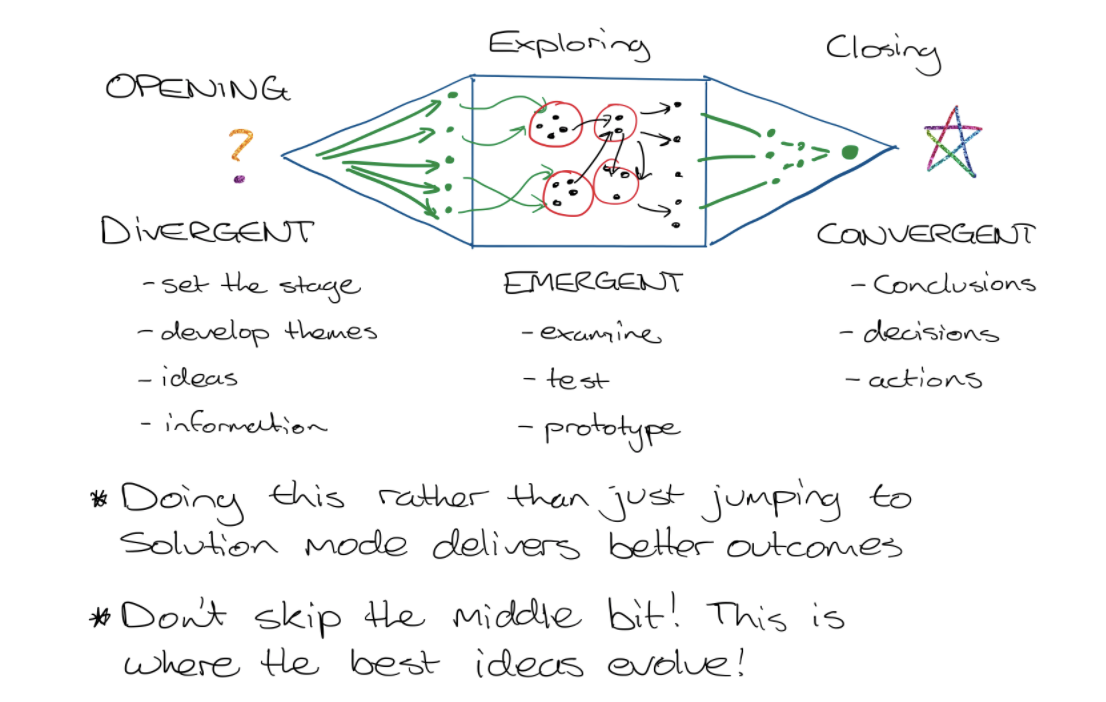 OPENING
Exploring
Closing
?
DIVERGENT
- set the stage
- develop themes
- ideas
- information
EMERGENT
- examine
- test
- prototype
CONVERGENT
- Conclusions
- decisions
- actions
* Doing this rather than just jumping to
Solution mode delivers better outcomes
* Don't skip the middle bit! This is
where the best ideas evolve!